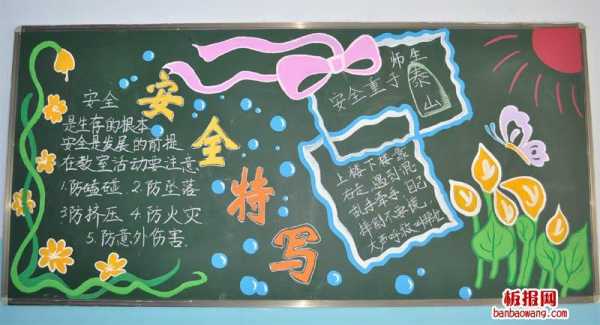 安全
是生存的根本
安全是发展的前提
在教室活动要注意
1.防磕碰 2.防坠落
3防挤压 4.防火灾
5.防意外伤害.
安全特写
师生
安全重于泰山
上楼下楼靠
右走,遇到
乱手牵手,自己
板报网
banbaowang.com